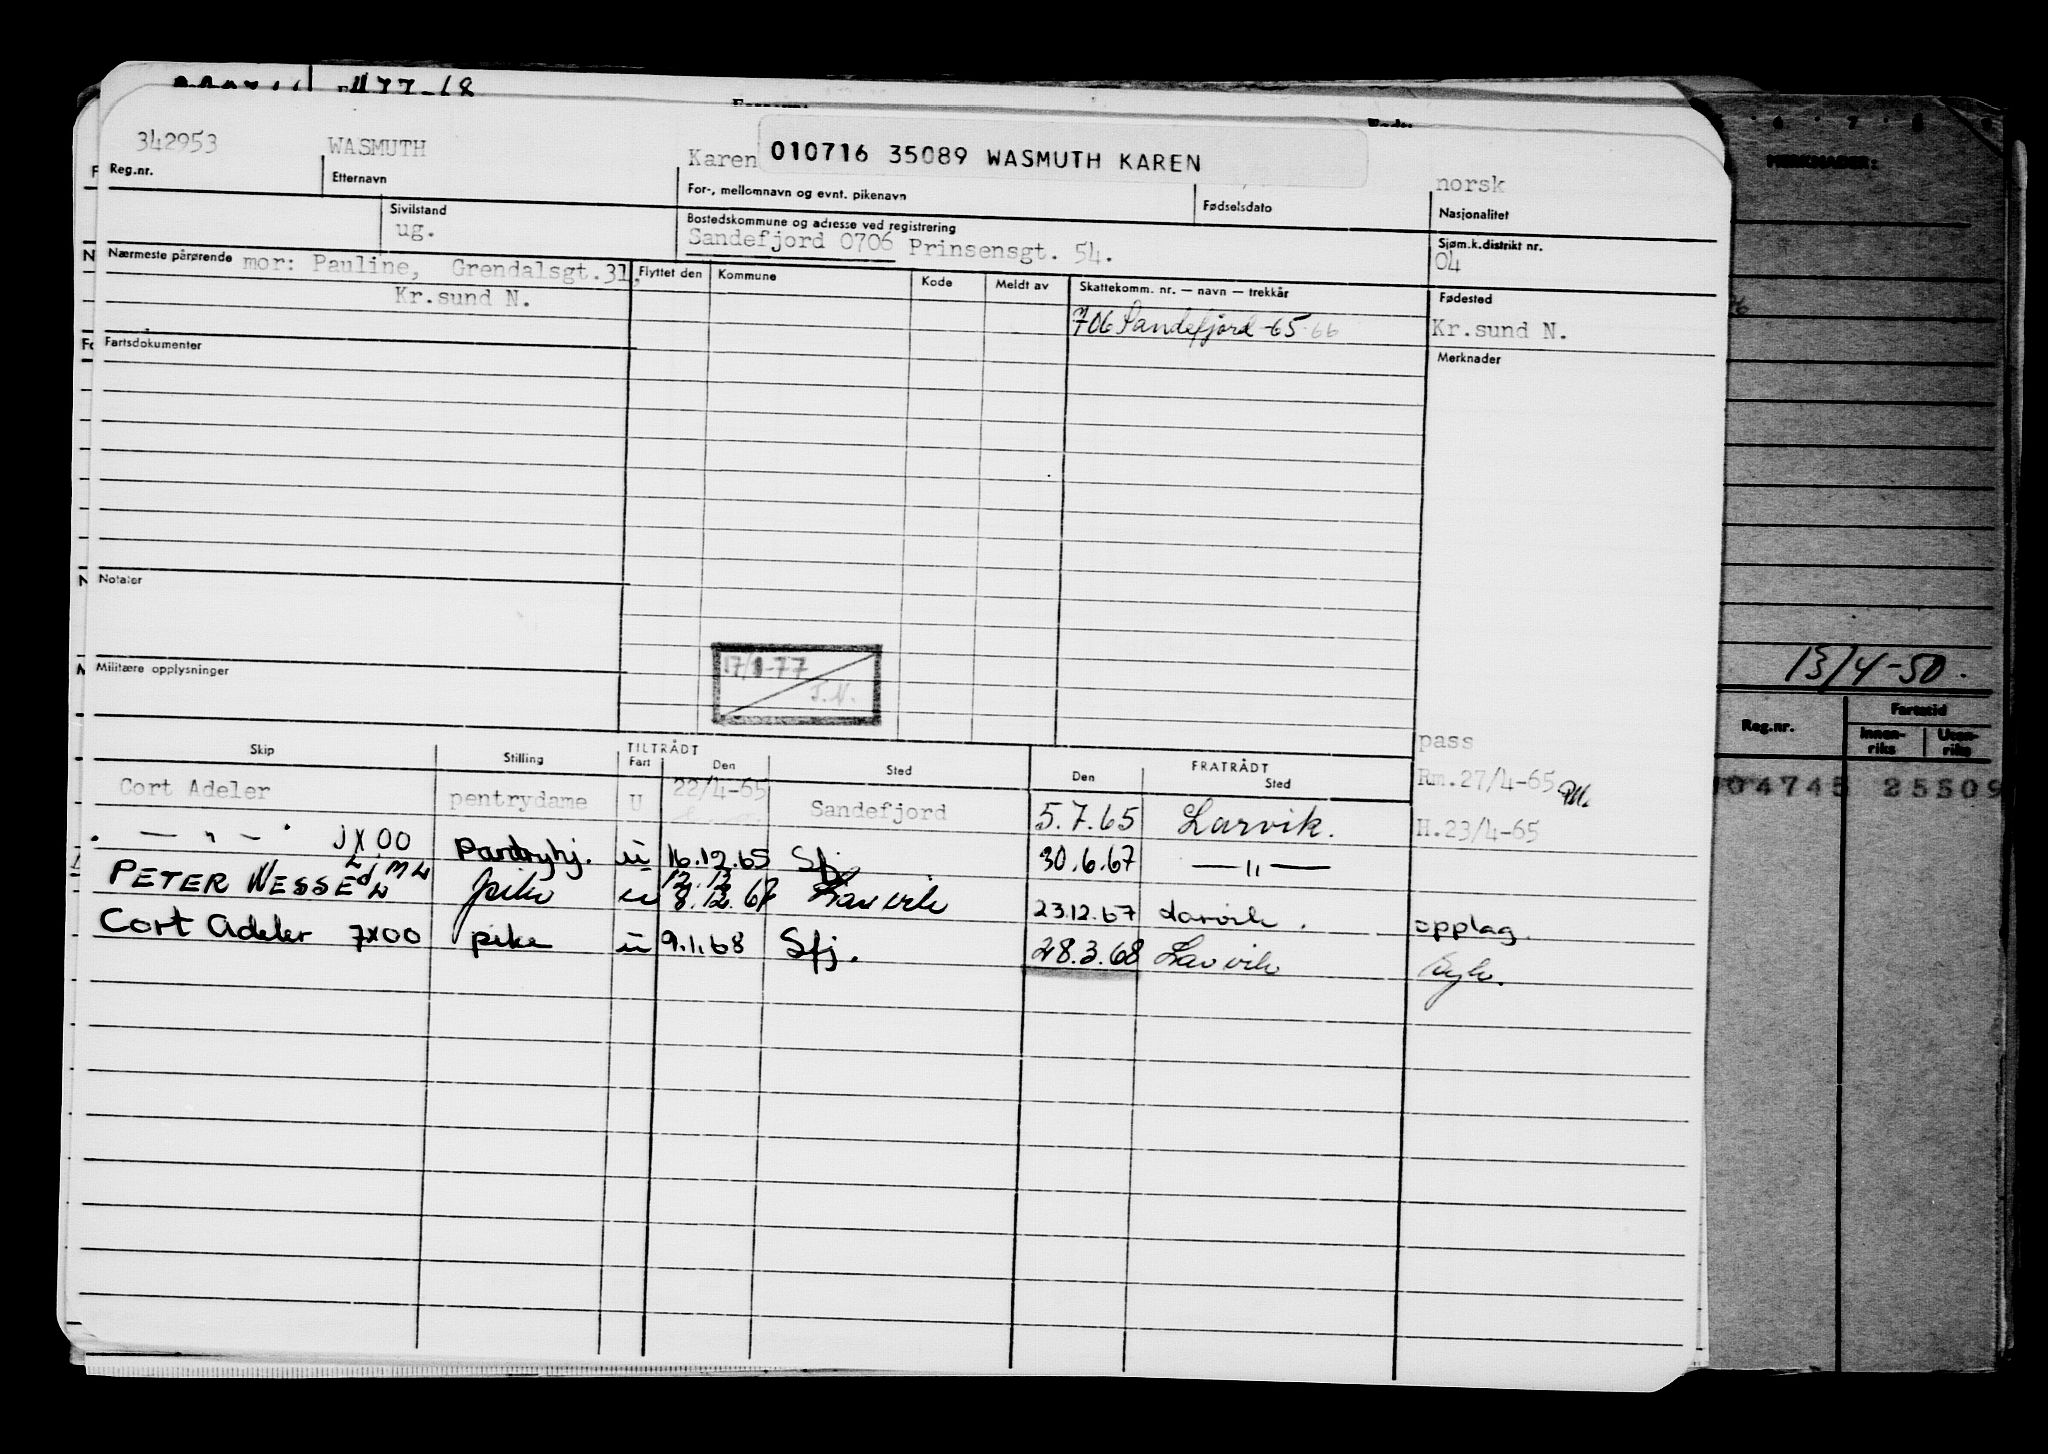 342953 WASMUTH Karen 010716 35089 WASMUTH KAREN norsk
Reg.nr. Etternavn For-, mellomnavn og evnt. pikenavn Fødselsdato Nasjonalitet
Sivilstand Bostedskommune og adresse ved registrering Sjøm.k.distrikt nr.
ug. Sandefjord 0706 Prinsensgt. 54. 04
Nærmeste pårørende mor: Pauline, Grendalsgt.31, Flyttet den Kommune Kode Meldt av Skattekomm. nr. — navn — trekkår Fødested
Kr.sund N. 706 Sandefjord -65-66 Kr.sund N.
Fartsdokumenter Merknader
Notater
Militære opplysninger
17/1-77
J.N.
13/4-50.
MERKNADER:
Reg.nr. Fartstid
Innen-riks Uten-riks
04745 25509
pass
Skip Stilling TILTRÅDT FRATRÅDT
Fart Den Sted Den Sted
Cort Adeler pentrydame U 22/4-65 Sandefjord 5.7.65 Larvik. Rm.27/4-65
H.23/4-65
— " — JXOO pantryhj. u 16.12.65 Sfj. 30.6.67 — " —
PETER WESSEL pike u 8.12.67 Larvik 23.12.67 Larvik. opplag.
Cort Adeler JXOO pike u 9.1.68 Sfj. 28.3.68 Larvik